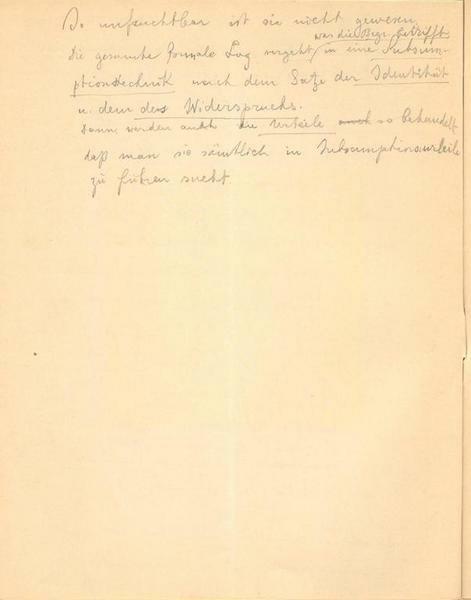 So unfruchtbar ist sie nicht gewesen.
was die Begr. betrifft
Die gesamte formale Log vergeht in eine Subsum-
ptionstechnik nach dem Satze der Identität
u. dem des Widerspruchs.
Dann werden auch die Urteile so behandelt
daß man sie sämtlich in Subsumptionsurteile
zu führen sucht.